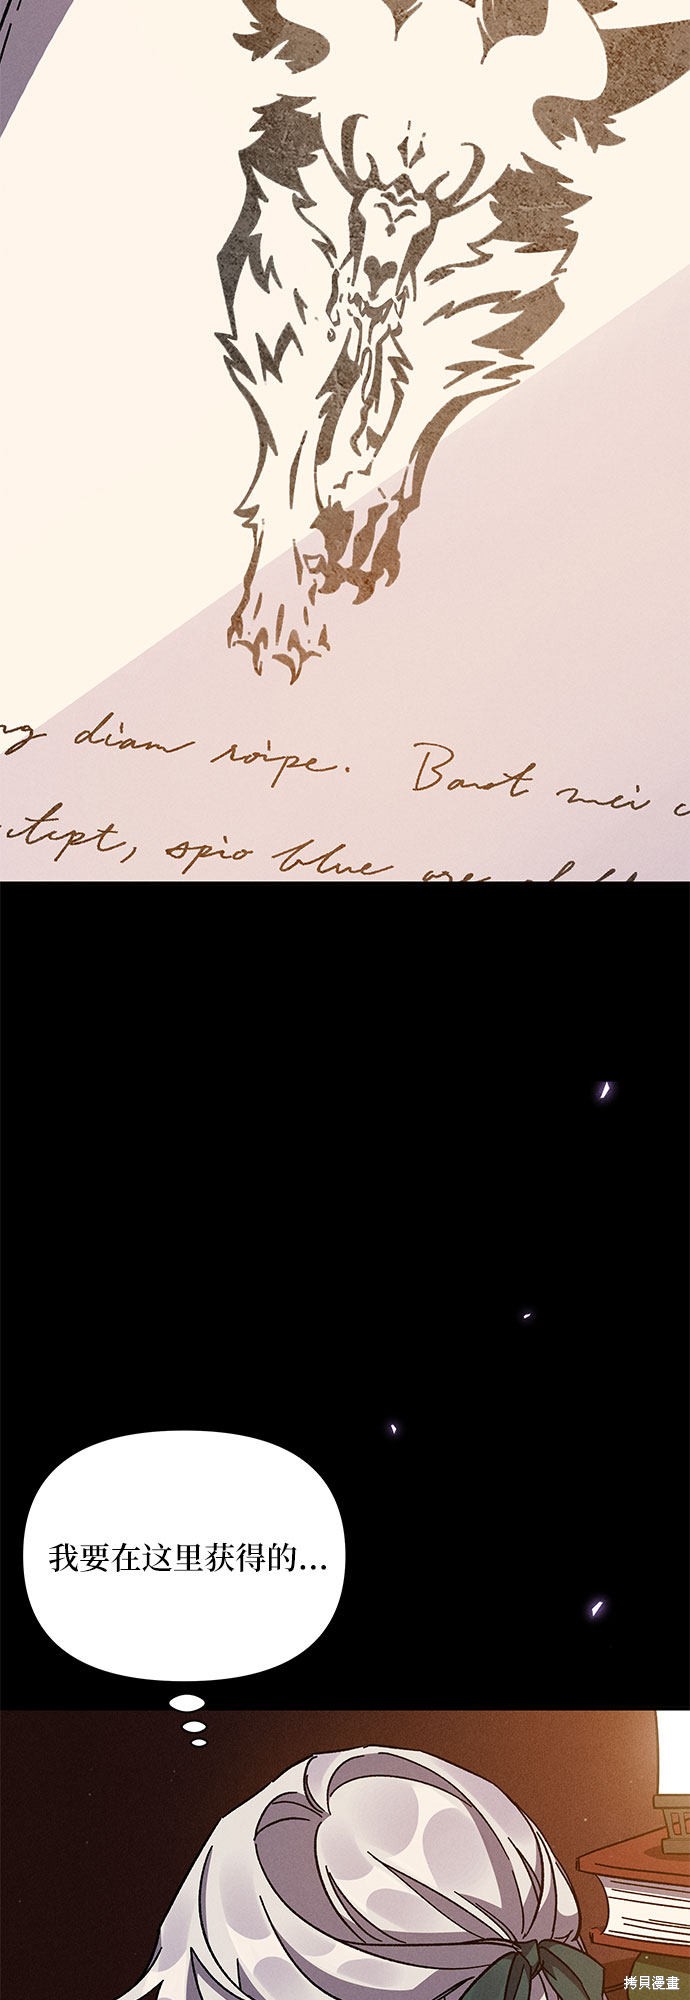 diam roipe. Barot mei
spio blue are
我要在这里获得的…
拷貝漫畫